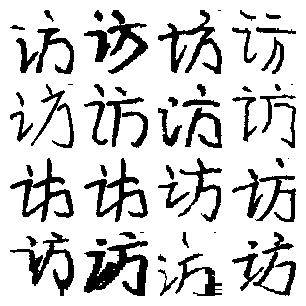 访访访访
访访访访
访访访访
访访访访